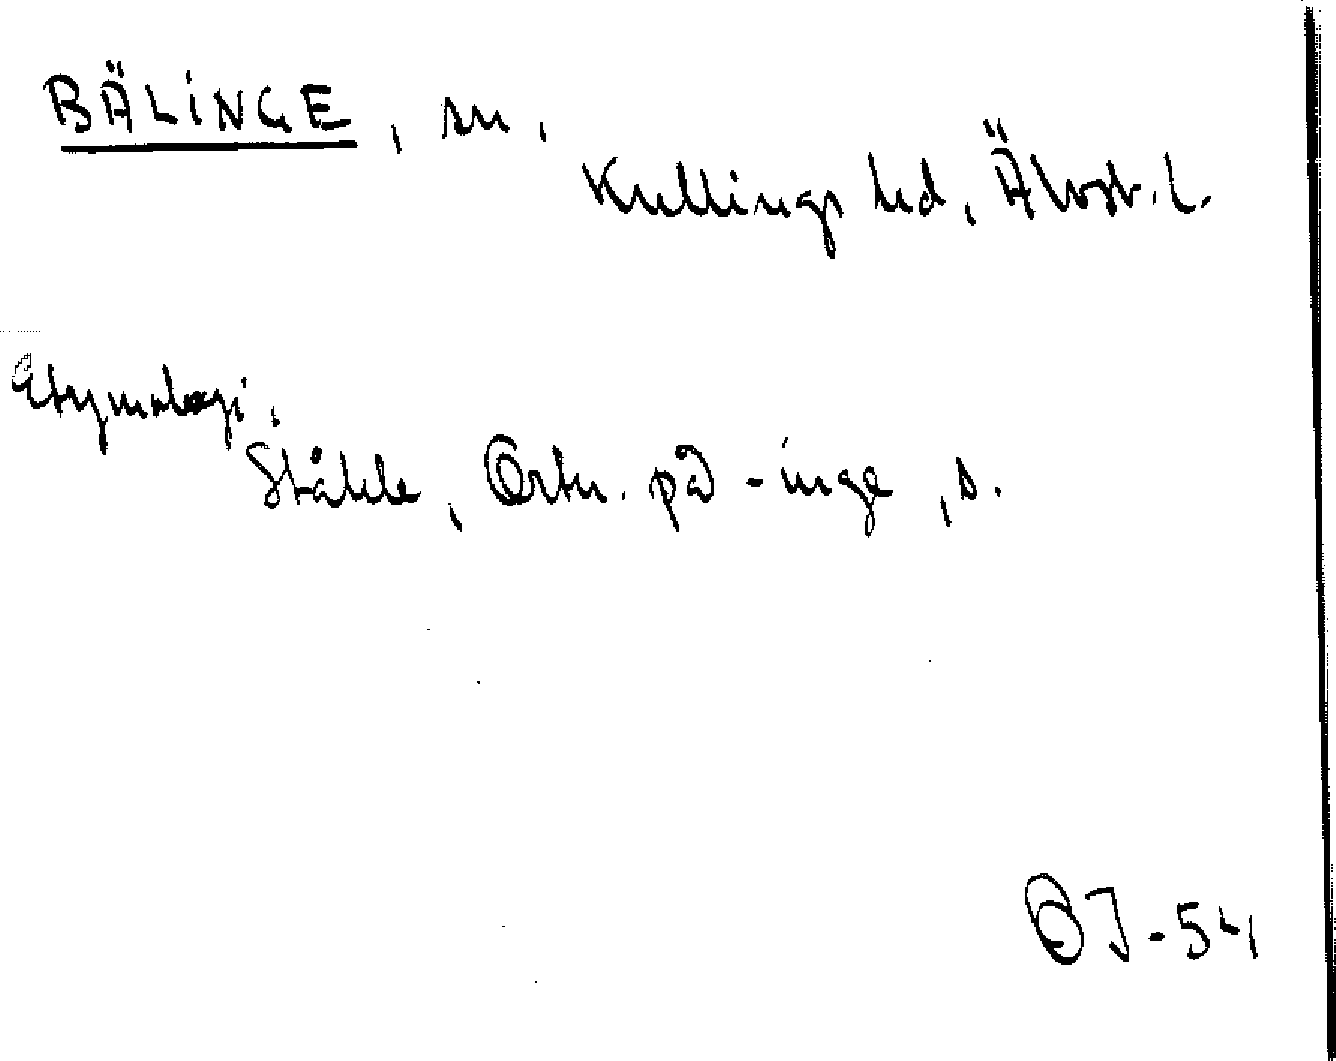 BÄLINGE, sn,
Kullings hd, Älvsb. l.
Etymologi.
Ståhle, Ortn. på -inge, s.
OJ-54